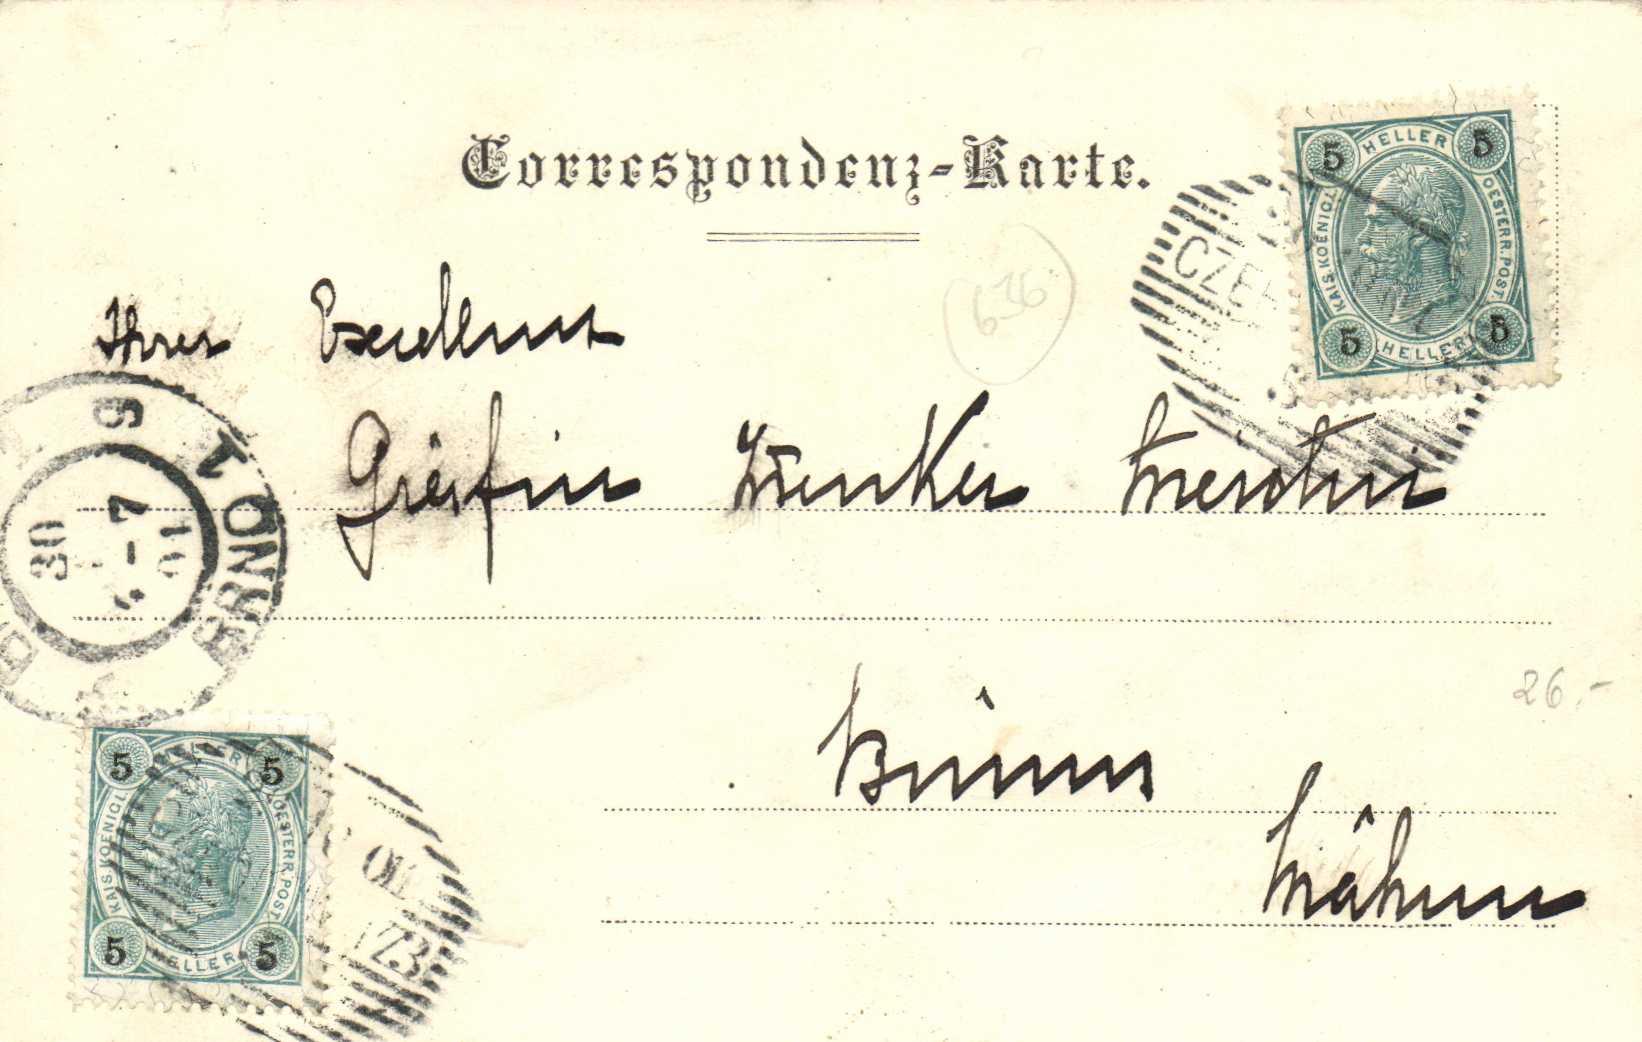 Correspondenz-Karte.
HELLER
5 5
KAIS. KOENIGL. OESTERR. POST.
5 5
HELLER
CZE
636
Ihrer Excellenz
Gräfin
9
1
BRNO
30
7
01
Brünn
26.-
Mähren
5 5
HELLER
KAIS. KOENIGL. OESTERR. POST.
5 5
HELLER